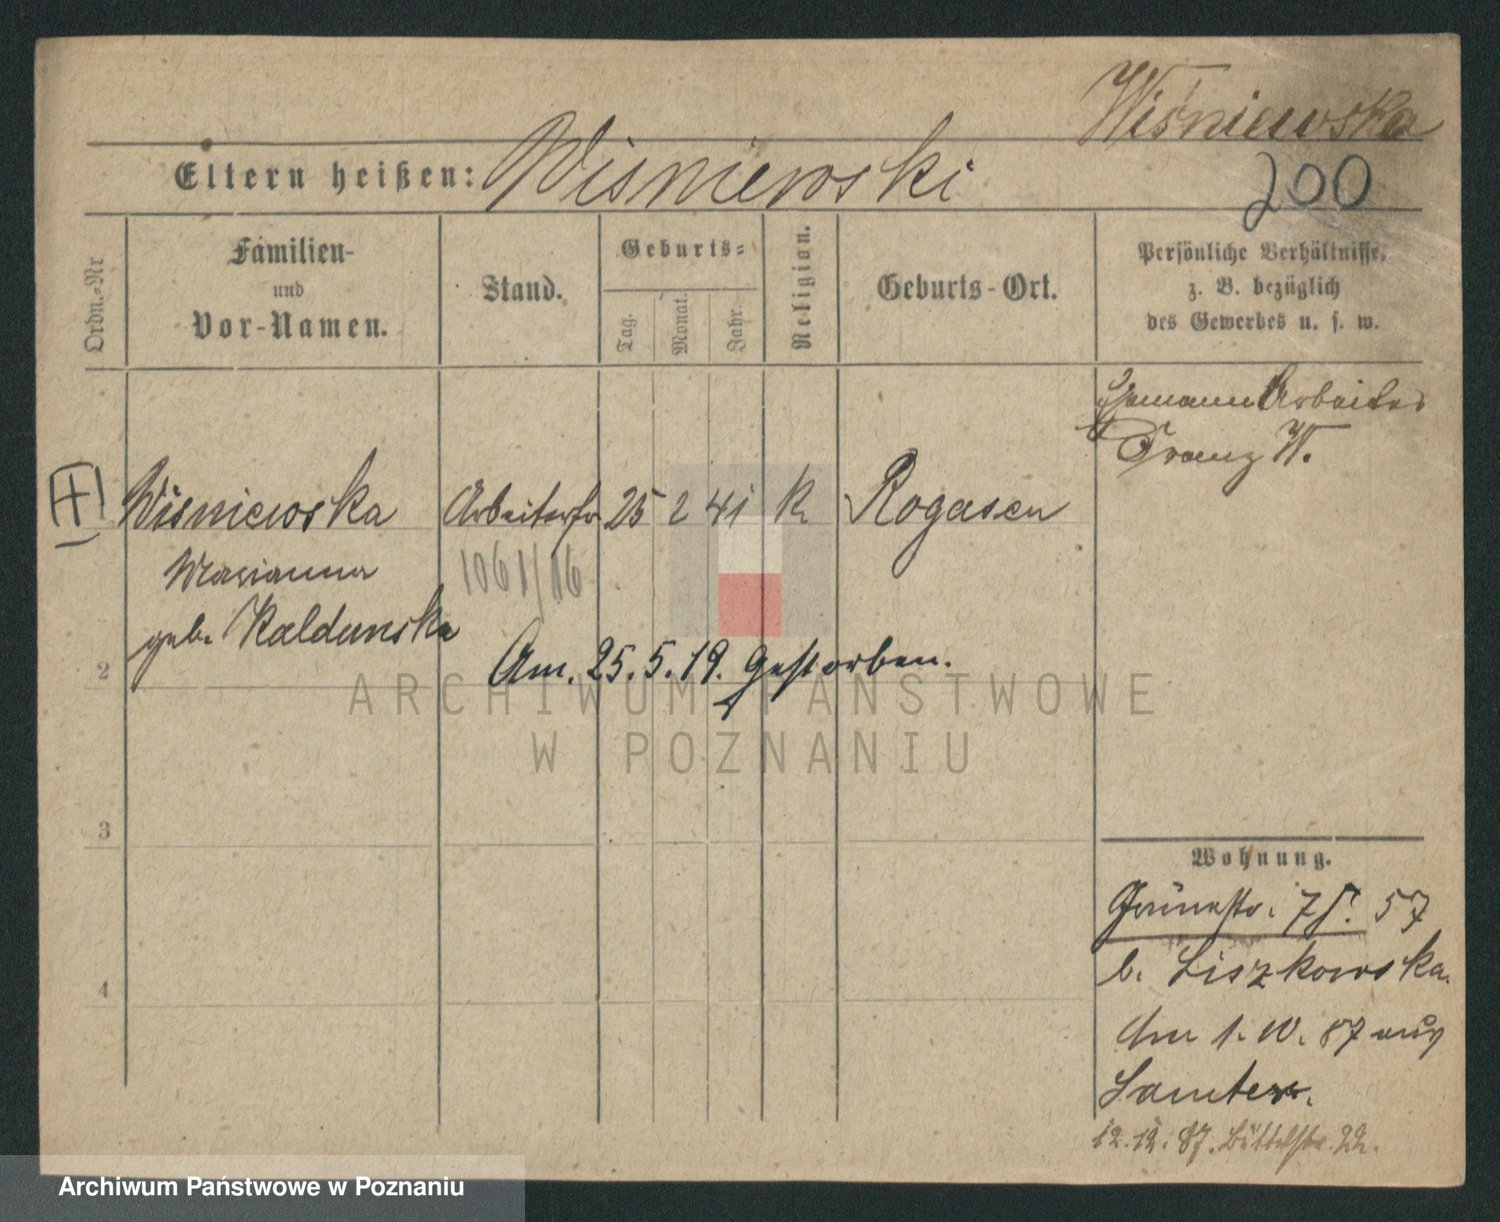 Wiśniewska
Eltern heißen: Wisniewski
200
Ordn.-Nr
Familien-
und
Vor-Namen.
Stand.
Geburts-
Tag.
Monat.
Jahr.
Religion.
Geburts-Ort.
Persönliche Verhältnisse,
z. B. bezüglich
des Gewerbes u. s. w.
Ehemann Arbeiter
Franz W.
Wisniewska Arbeiterfr 25 2 41 k Rogasen
Marianna
1061/16
geb. Kaldunska
2
Am. 25.5.19. gestorben.
ARCHIWUM PAŃSTWOWE
W POZNANIU
3
Wohnung.
Grünestr. 57
b. Liszkowska.
4
Am 1.10.87 aus
Samter.
12.12.87. Büttelstr. 22.
Archiwum Państwowe w Poznaniu